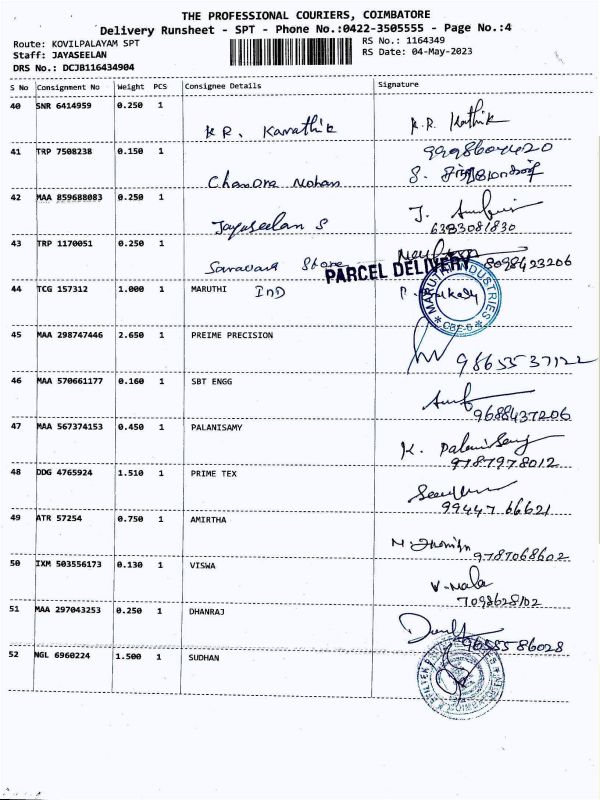 THE PROFESSIONAL COURIERS, COIMBATORE
Delivery Runsheet - SPT - Phone No.:0422-3505555 - Page No.:4
Route: KOVILPALAYAM SPT
RS No.: 1164349
Staff: JAYASEELAN
RS Date: 04-May-2023
DRS No.: DCJB116434904
S No Consignment No Weight PCS Consignee Details Signature
40 SNR 6414959 0.250 1
K.R. Karathik K.R. Kathik
41 TRP 7508238 0.150 1
Chandra Mohan
42 MAA 859688083 0.250 1
Jayaseelan S J.
6383081830
43 TRP 1170051 0.250 1
Saravana Store 8098423206
PARCEL DELIVERY
44 TCG 157312 1.000 1 MARUTHI IND
MARUTHI INDUSTRIES * CBE-6 *
45 MAA 298747446 2.650 1 PREIME PRECISION
9865537122
46 MAA 570661177 0.160 1 SBT ENGG
9688437206
47 MAA 567374153 0.450 1 PALANISAMY
K. Palanisamy
9787978012
48 DDG 4765924 1.510 1 PRIME TEX
99447 66621
49 ATR 57254 0.750 1 AMIRTHA
9787068602
50 IXM 503556173 0.130 1 VISWA
V. Mala
7098628102
51 MAA 297043253 0.250 1 DHANRAJ
9655586028
52 NGL 6960224 1.500 1 SUDHAN